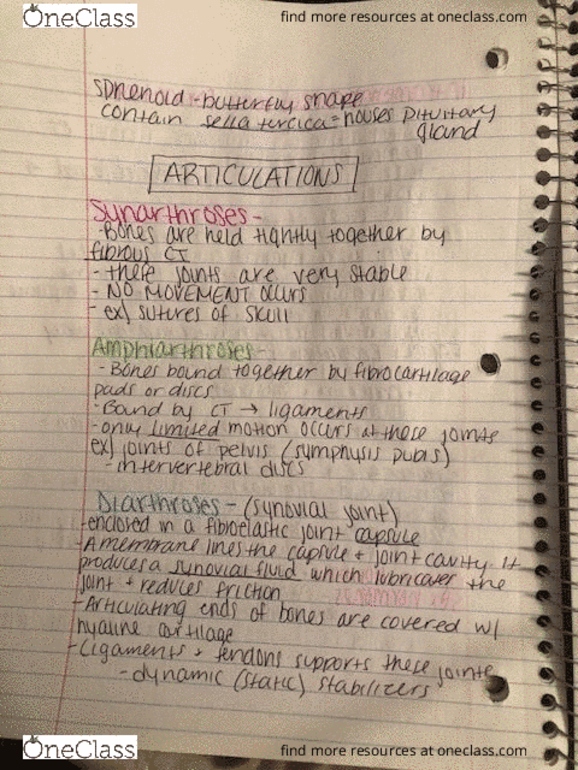 OneClass
find more resources at oneclass.com
sphenoid - butterfly shape
contain sella turcica = houses pituitary
gland
ARTICULATIONS
Synarthroses -
- Bones are held tightly together by
fibrous CT
- these joints are very stable
- NO MOVEMENT occurs
- ex) sutures of skull
Amphiarthroses -
- Bones bound together by fibrocartilage
pads or discs
- Bound by CT → ligaments
- only limited motion occurs at these joints
ex) joints of pelvis (symphysis pubis)
- intervertebral discs
Diarthroses - (synovial joint)
- enclosed in a fibroelastic joint capsule
- A membrane lines the capsule + joint cavity. It
produces a synovial fluid which lubricates the
joint + reduces friction
- Articulating ends of bones are covered w/
hyaline cartilage
- Ligaments + tendons supports these joints
- dynamic (static) stabilizers
OneClass
find more resources at oneclass.com